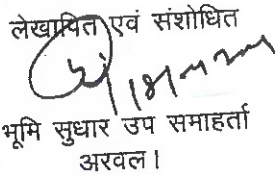 लेखापित एवं संशोधित
भूमि सुधार उप समाहर्ता
अरवल।